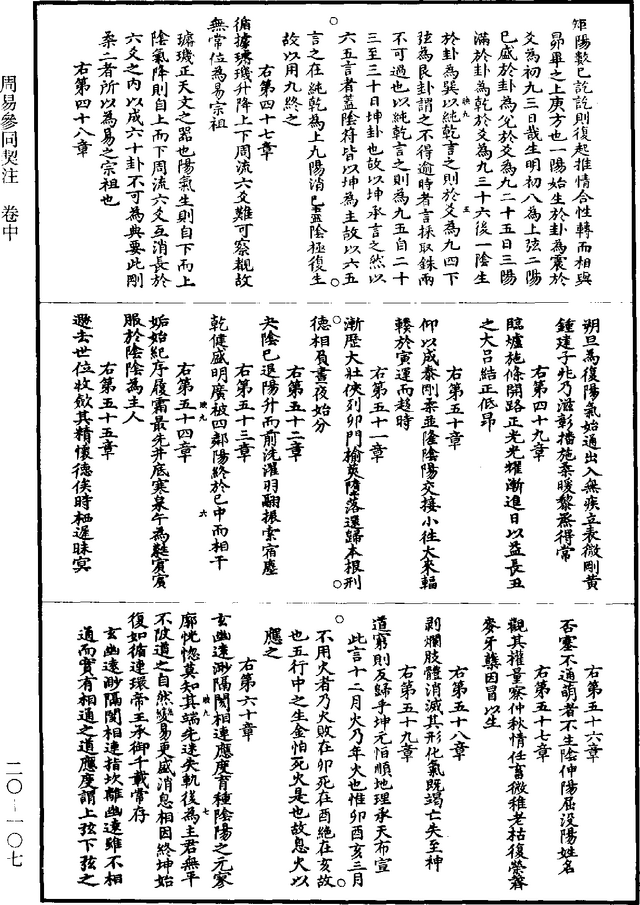 矩陽數已訖訖則復起推情合性轉而相與
昴畢之上庚方也一陽始生於卦為震於
爻為初九三日哉生明初八為上弦二陽
已盛於卦為兌於爻為九二十五日三陽
滿於卦為乾於爻為九三十六後一陰生
映九 五
於卦為巽以純乾言之則於爻為九四下
弦為艮卦謂之不得逾時者言採取銖兩
不可過也以純乾言之則為九五自二十
三至三十日坤卦也故以坤承言之然以
六五言者蓋陰符皆以坤為主故以六五
言之在純乾為上九陽消已盡陰極復生
故以用九終之
右第四十七章
循據璇璣升降上下周流六爻難可察覩故
無常位為易宗祖
璿璣正天文之器也陽氣生則自下而上
陰氣降則自上而下周流六爻互消長於
六爻之內以成六十卦不可為典要此剛
柔二者所以為易之宗祖也
右第四十八章
朔旦為復陽氣始通出入無疾立表微剛黃
鍾建子兆乃滋彰播施柔暖黎蒸得常
右第四十九章
臨墟施條開路正光光耀漸進日以益長丑
之大呂結正低昂
右第五十章
仰以成泰剛柔並隆陰陽交接小往大來輻
輳於寅運而趨時
右第五十一章
漸歷大壯俠列卯門榆莢墮落還歸本根刑
德相負晝夜始分
右第五十二章
夬陰已退陽升而前洗濯羽翮振索宿塵
右第五十三章
乾健盛明廣被四鄰陽終於巳中而相干
映九 六
右第五十四章
姤始紀序履霜最先井底寒泉午為蕤賓賓
服於陰陰為主人
右第五十五章
遯去世位收斂其精懷德俟時栖遲昧冥
右第五十六章
否塞不通萌者不生陰伸陽屈沒陽姓名
右第五十七章
觀其權量察仲秋情任畜微稚老枯復榮薺
麥牙蘗因冒以生
右第五十八章
剝爛肢體消滅其形化氣既竭亡失至神
右第五十九章
道窮則反歸乎坤元恒順地理承天布宣
此言十二月火乃年火也惟卯酉亥三月
不用火者乃火敗在卯死在酉絕在亥故
也五行中之生金怕死火是也故息火以
應之
右第六十章
玄幽遠渺隔閡相連應度育種陰陽之元寥
廓恍惚莫知其端先迷失軌後為主君無平
映九 七
不陂道之自然變易更盛消息相因終坤始
復如循連環帝王承御千載常存
玄幽遠渺隔閡相連指坎離幽遠雖不相
通而實有相通之道應度謂上弦下弦之
周易參同契注 卷中
二〇—一〇七